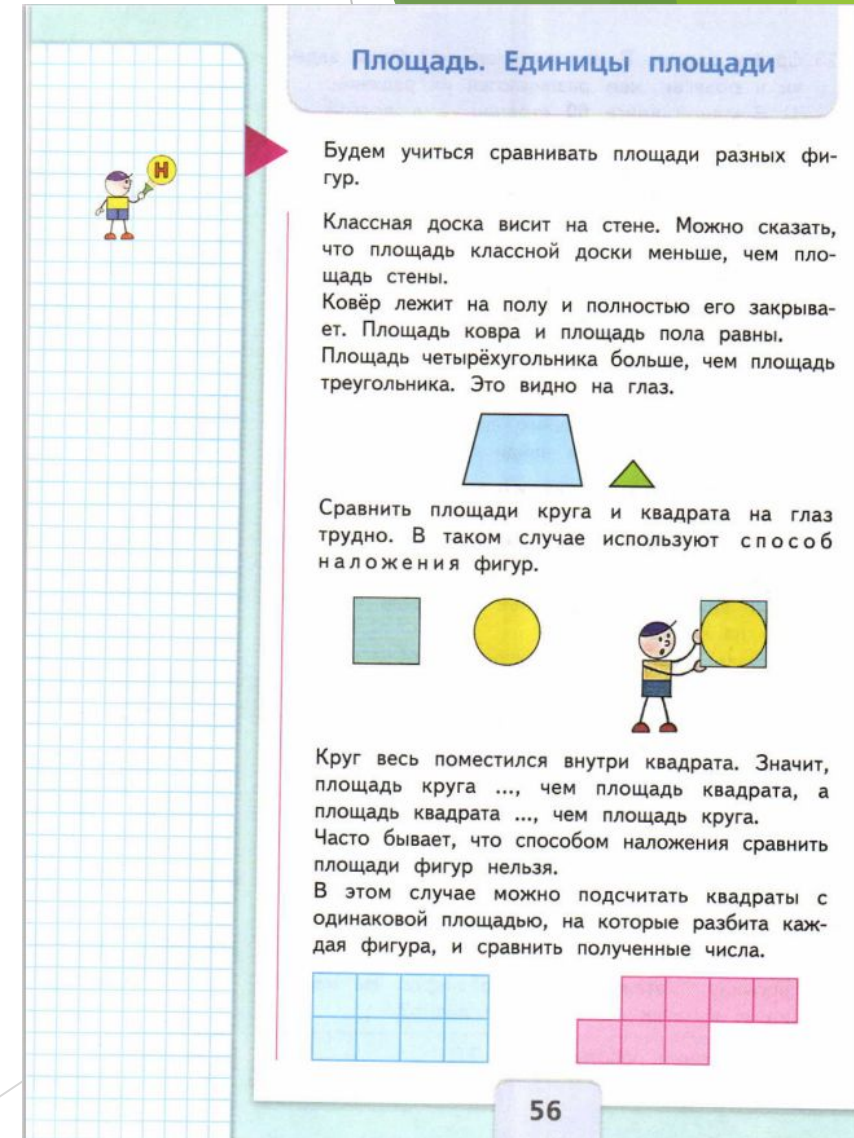 Площадь. Единицы площади
Н
Будем учиться сравнивать площади разных фи-
гур.
Классная доска висит на стене. Можно сказать,
что площадь классной доски меньше, чем пло-
щадь стены.
Ковёр лежит на полу и полностью его закрыва-
ет. Площадь ковра и площадь пола равны.
Площадь четырёхугольника больше, чем площадь
треугольника. Это видно на глаз.
Сравнить площади круга и квадрата на глаз
трудно. В таком случае используют способ
наложения фигур.
Круг весь поместился внутри квадрата. Значит,
площадь круга ..., чем площадь квадрата, а
площадь квадрата ..., чем площадь круга.
Часто бывает, что способом наложения сравнить
площади фигур нельзя.
В этом случае можно подсчитать квадраты с
одинаковой площадью, на которые разбита каж-
дая фигура, и сравнить полученные числа.
56